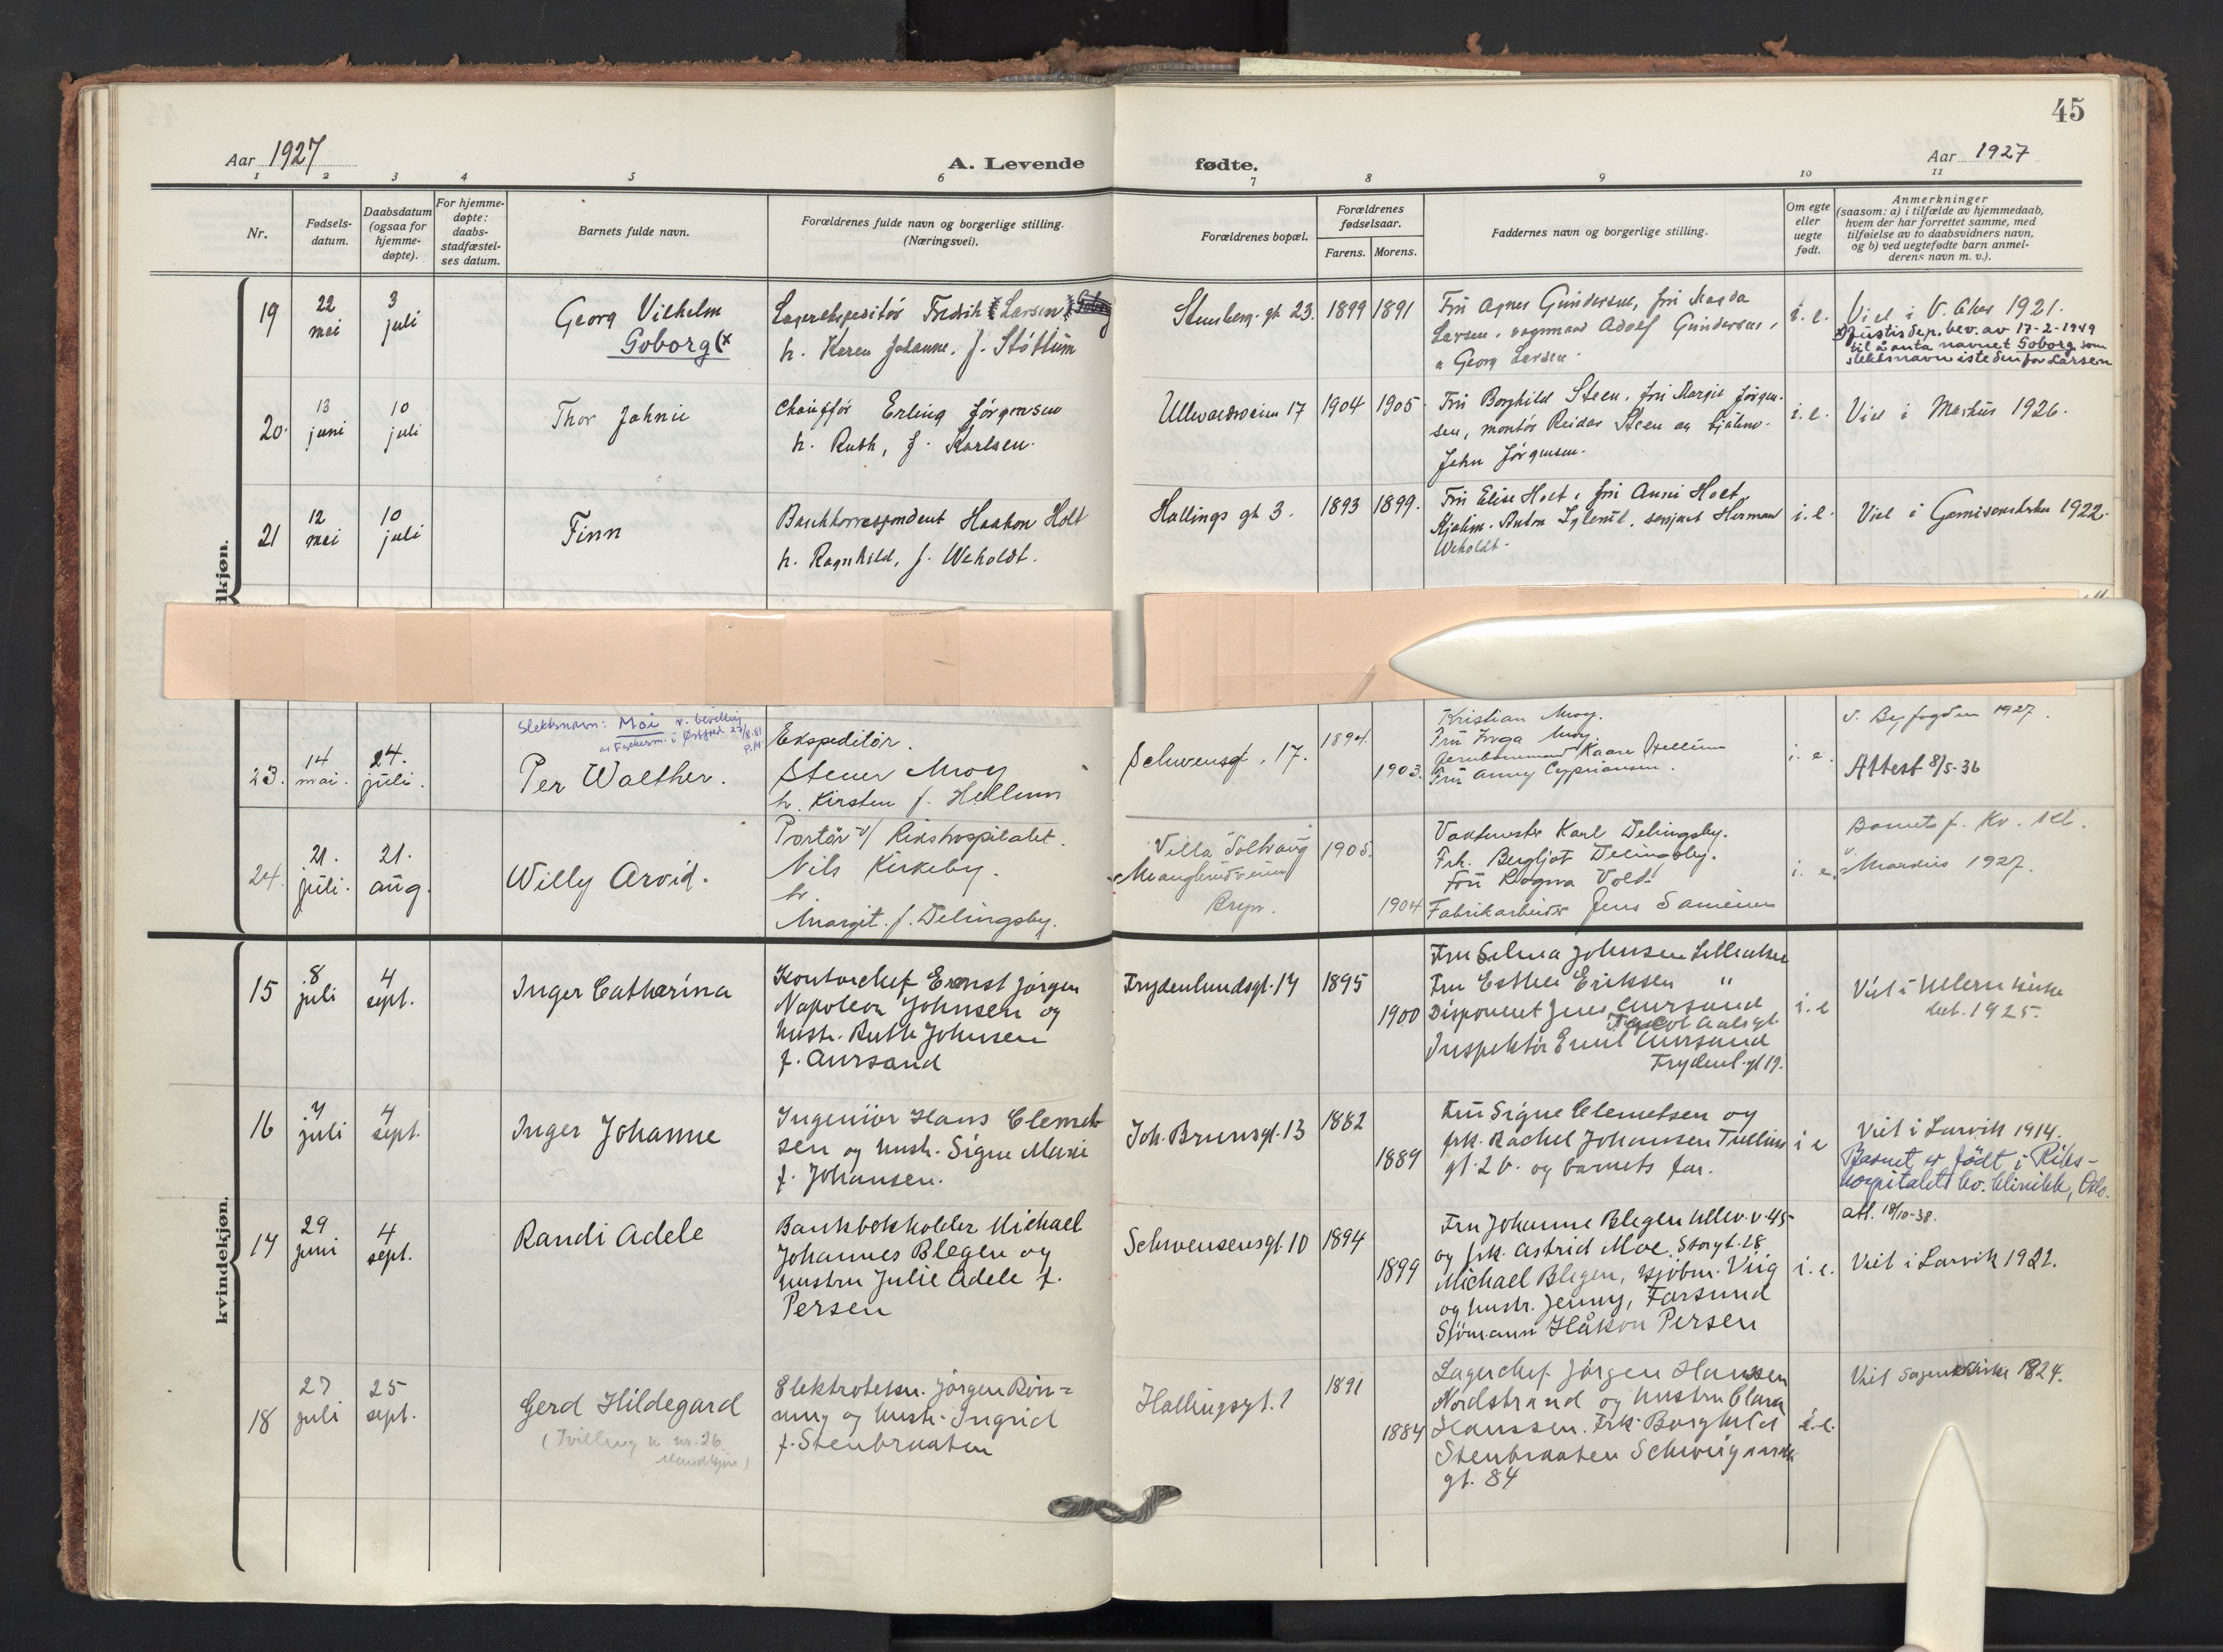 45
Aar 1927
A. Levende
fødte.
Aar 1927
1 2 3 4 5 6 7 8 9 10 11
Nr.
Fødsels-
datum.
Daabsdatum
(ogsaa for
hjemme-
døpte).
For hjemme-
døpte:
daabs-
stadfæstel-
ses datum.
Barnets fulde navn.
Forældrenes fulde navn og borgerlige stilling.
(Næringsvei).
Forældrenes bopæl.
Forældrenes
fødselsaar.
Farens. Morens.
Faddernes navn og borgerlige stilling.
Om egte
eller
uegte
født.
Anmerkninger
(saasom: a) i tilfælde av hjemmedaab,
hvem der har forrettet samme, med
tilføielse av to daabsvidners navn,
og b) ved uegtefødte barn anmel-
derens navn m. v.).
dkjøn.
19
22
mai
3
juli
Georg Vilhelm
Goborg (x
Lagerekspeditør Fredrik Larsen
h. Karen Johanne, f. Støttum
Stensberg. gt 23.
1899
1891
Fru Agnes Gundersen, fru Magda
Larsen, vognmand Adolf Gundersen,
Georg Larsen.
i. e.
Viel i V. Aker 1921.
x) Justisdep. bev. av 17-2-1949
til å anta navnet Goborg som
slektsnavn istedenfor Larsen
20.
13
juni
10
juli
Thor Johnie
Chauffør Erling Jørgensen
h. Ruth, f. Karlsen.
Ullevaalsveien 17
1904
1905.
Fru Borghild Steen, fru Margit Jørgen-
sen, montør Reidar Steen og
John Jørgensen.
i. e.
Viel i Markus 1926.
21
12
mai
10
juli
Finn
Haakon Holt
h. Ragnhild, f. Weholdt.
Hallings gt 3.
1893
1899.
Fru Elise Holt, fru Anni Holt,
Kjøbm. Anton, serjant Herman
Weholdt.
i. e.
Viel i Garnisonskirken 1922.
23.
14
mai.
24.
juli.
Slektsnavn: Moi v. bevilling
Per Walther.
Ekspeditør.
Stener Moy
h. Kirsten f. Hellum
Schwensgt. 17.
1894.
1903.
Kristian Moy.
Fru Inga Moy.
Kaare Hellum
Fru Anny Cypriansen.
i. e.
v. Byfogden 1927.
Attest 8/5-36
24.
21.
juli.
21.
aug.
Willy Arvid.
Portør v/ Rikshospitalet.
Nils Kirkeby.
h.
Margit. f. Delingsby.
Villa Solhaug
Manglerudveien
Bryn.
1905.
1904
Vaktmester Karl Delingsby.
Frk. Bergljot Delingsby.
Fru Ragna Vold.
Fabrikarbeider Jens
i. e.
Barnet f. Kv. kl.
v.
1927.
kvindekjøn.
15
8
juli
4
sept.
Inger Catharina
Kontorchef Ernst Jørgen
Napoleon Johnsen og
hustr. Ruth Johnsen
f. Aursand
Frydenlundsgt. 14
1895
1900
Fru Selma Johnsen Lilleaker
Fru Esther Eriksen "
Disponent Jens Aursand
Jacob Aalsgt.
Inspektør Emil Aursand
Frydenl. gt 19.
i. e
Viet i Ullern kirke
1925.
16
7
juli
4
sept.
Inger Johanne
Ingeniør Hans Clemet-
sen og hustr. Signe Marie
f. Johansen.
Joh. Brunsgt. 13
1882
1889
Fru Signe Clemetsen og
frk. Rachel Johansen Tullins
gt. 2 b. og barnets far.
i e
Viet i Larvik 1914.
Barnet er født i Riks-
hospitalets kv. klinikk, Oslo.
17
29
juni
4
sept.
Randi Adele
Bankbokholder Michael
Johannes Blegen og
hustru Julie Adele f.
Persen
Schwensensgt. 10
1894
1899
Fru Johanne Blegen Ullev. v. 45
og frk. Astrid Moe, Storgt. 28
Michael Blegen, kjøbm. Virig
og hustr. Jenny, Farsund
Sjømann Håkon Persen
i. e.
att. 18/10-38.
Viet i Larvik 1921.
18
27
juli
25
sept.
Gerd Hildegard
(Tvilling m. nr. 26
Mandkjøn)
Elektrotekn. Jørgen Røn-
ning og hustr. Ingrid
f. Stenbraaten
Hallingsgt. 1
1891
1884
Lagerchef Jørgen Hanssen
Nordstrand og hustru Clara
Hanssen. Frk. Borghild
Stenbraaten Schweigaards
gt. 84
i. e.
Viet Sagenekirke 1824.